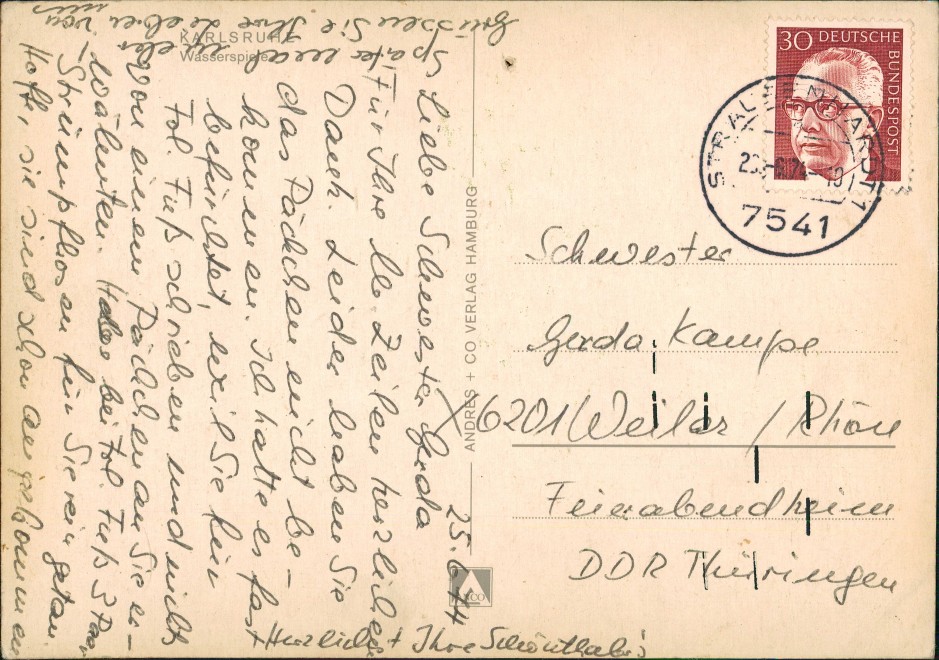 KARLSRUHE
Wasserspiele
25.6.74
Liebe Schwester Gerda
Für Ihre lb. Zeilen herzlichen
Dank. Leider haben Sie
das Päckchen nicht be-
kommen. Ich hatte es fast
befürchtet, weil Sie für
Frl. Fuß schrieben und nichts
von einem Päckchen an Sie er-
wähnten. Habe bei Frl. Fuß 3 Paar
Strumpfhosen für Sie reingetan
Hoffe, sie sind schon angekommen
Grüßen Sie Ihre Lieben von
uns
Herzlichst Ihre Schönthaler's
ANDRES + CO VERLAG HAMBURG
30 DEUTSCHE BUNDESPOST
STRAUBENHARDT 1
7541
Schwester
Gerda Kampe
X6201 Weilar / Rhön
Feierabendheim
DDR Thüringen